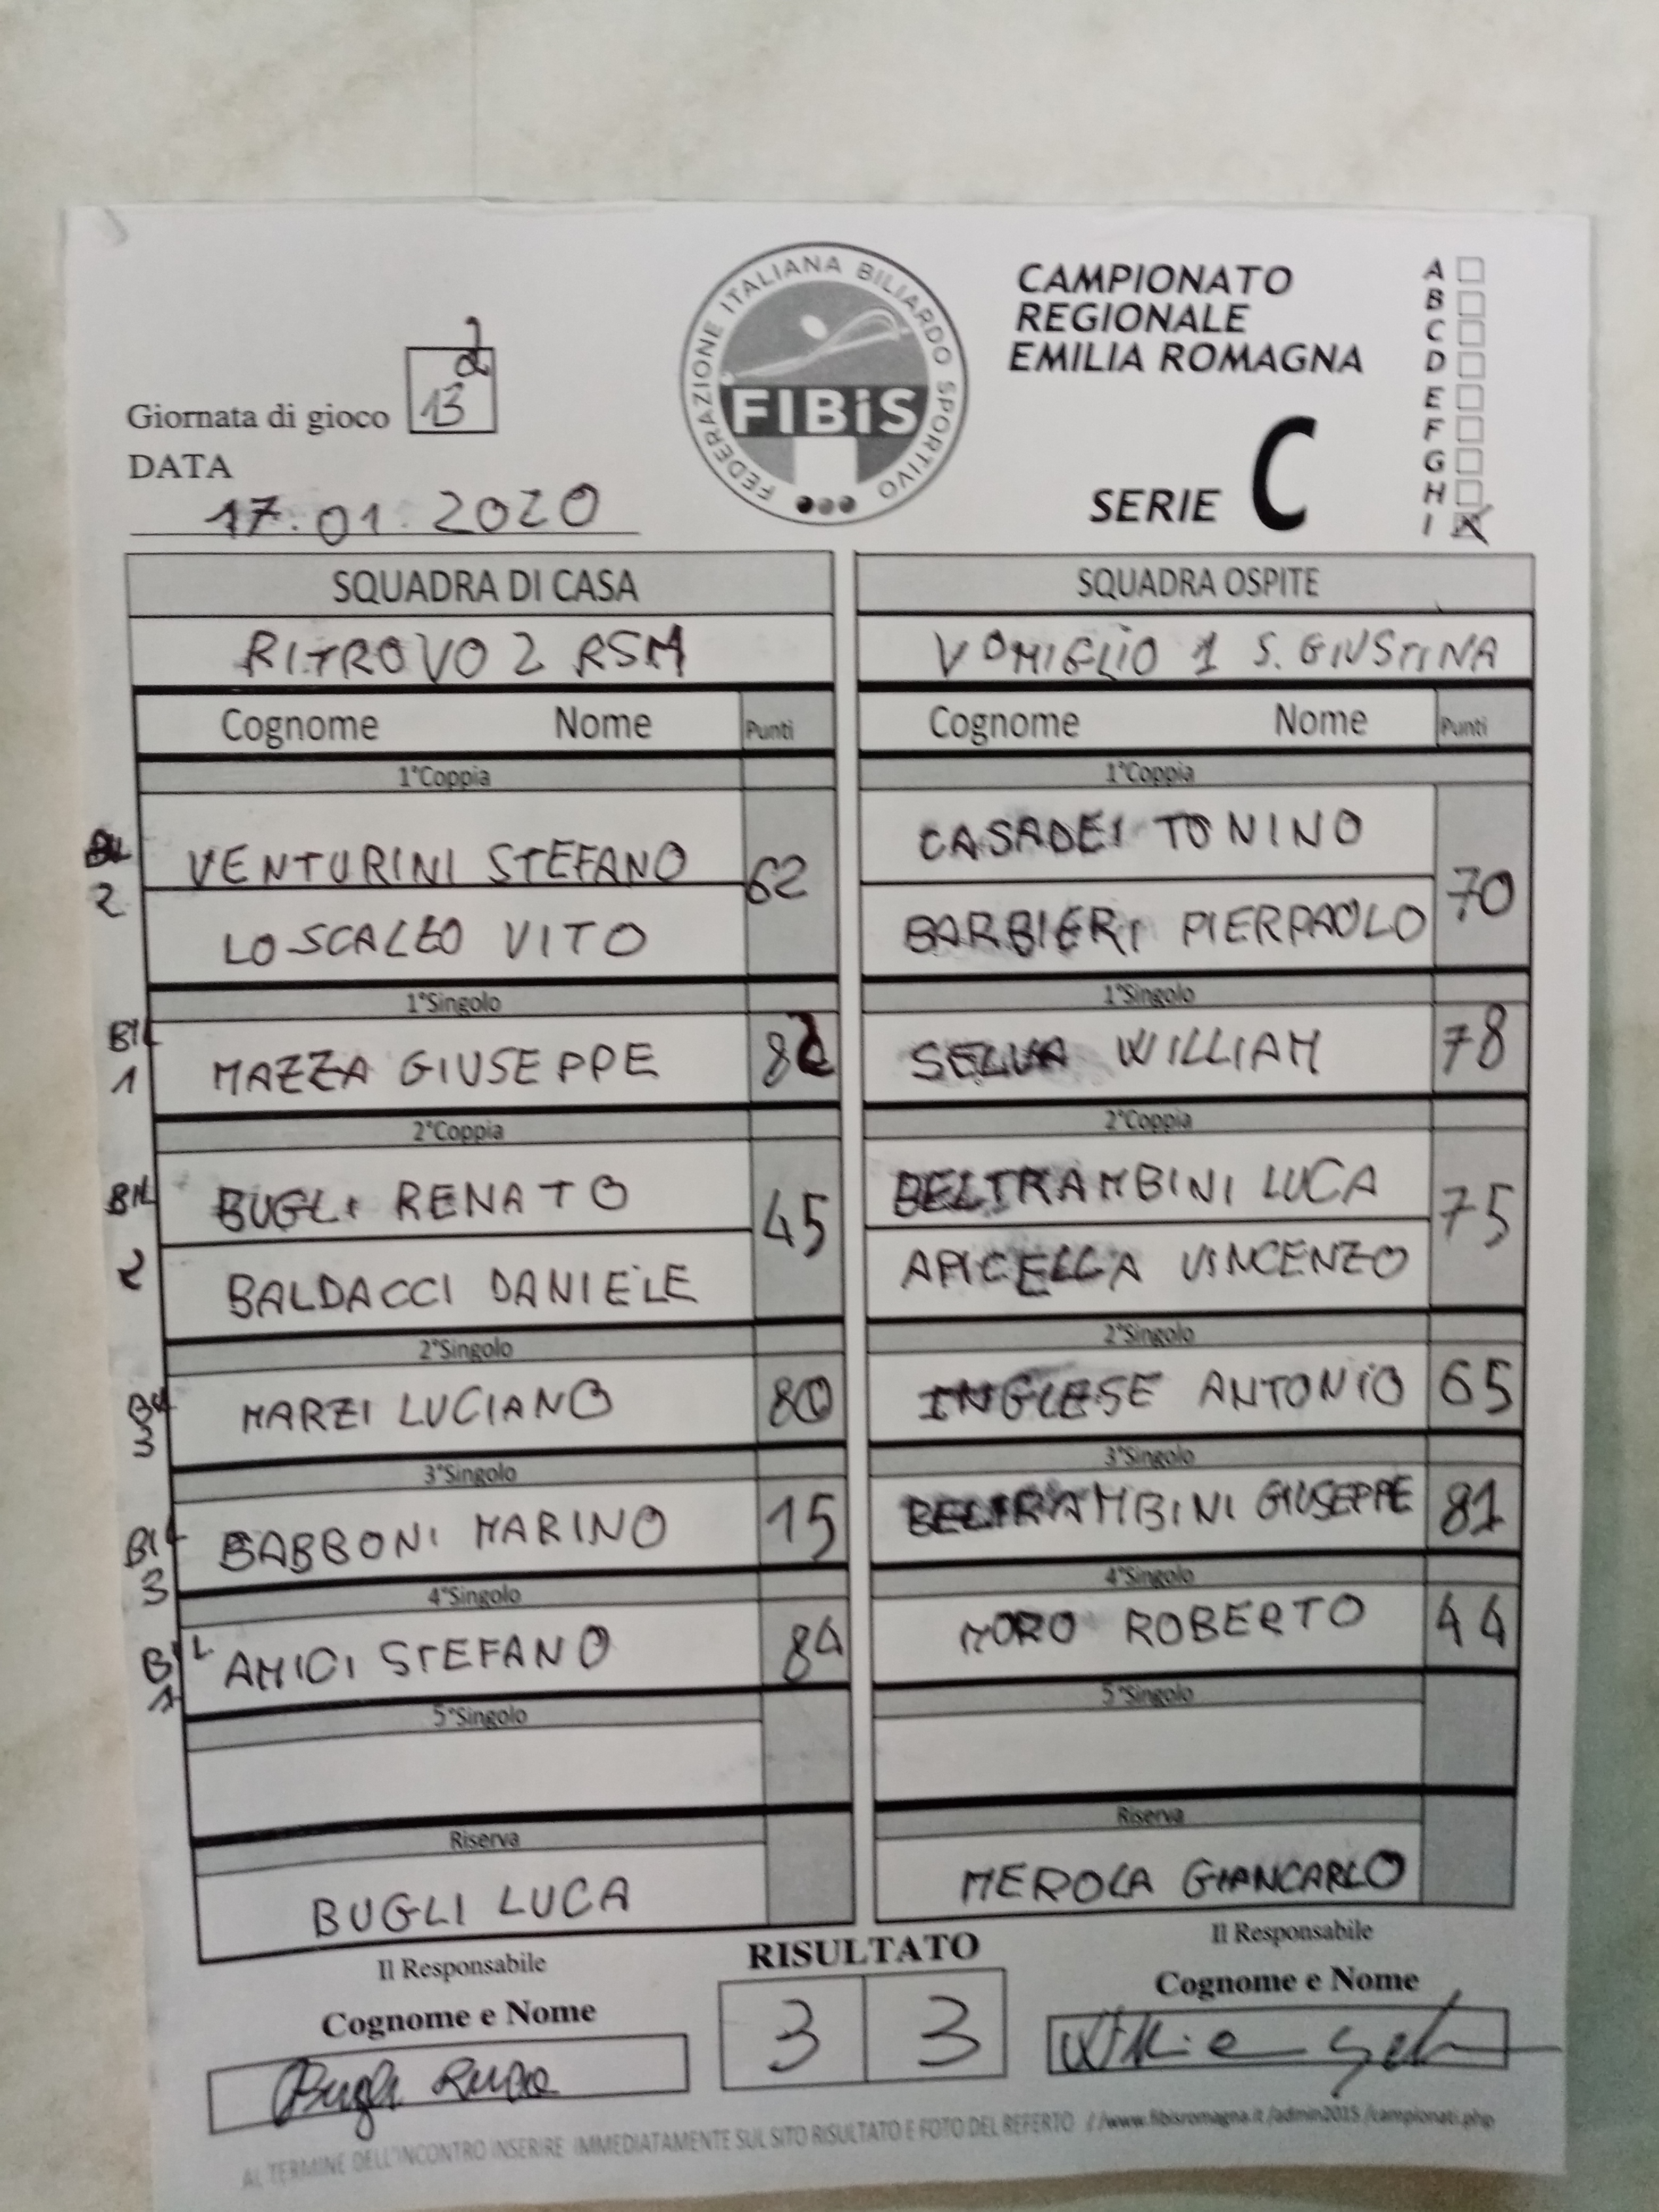 FEDERAZIONE ITALIANA BILIARDO SPORTIVO
FIBiS
CAMPIONATO
REGIONALE
EMILIA ROMAGNA
SERIE C
A
B
C
D
E
F
G
H
I X
Giornata di gioco 13
DATA
17.01.2020
SQUADRA DI CASA
RITROVO 2 RSM
Cognome Nome Punti
1°Coppia
BIL 2
VENTURINI STEFANO 62
LOSCALZO VITO
1°Singolo
BIL 1
MAZZA GIUSEPPE 82
2°Coppia
BIL 2
BUGLI RENATO 45
BALDACCI DANIELE
2°Singolo
BIL 3
MARZI LUCIANO 80
3°Singolo
BIL 3
BABBONI MARINO 15
4°Singolo
BIL 1
AMICI STEFANO 84
5°Singolo
Riserva
BUGLI LUCA
Il Responsabile
Cognome e Nome
SQUADRA OSPITE
VOMIGLIO 1 S. GIUSTINA
Cognome Nome Punti
1°Coppia
CASADEI TONINO 70
BARBIERI PIERPAOLO
1°Singolo
SELVA WILLIAM 78
2°Coppia
BELTRAMBINI LUCA 75
APICELLA VINCENZO
2°Singolo
INGLESE ANTONIO 65
3°Singolo
BELTRAMBINI GIUSEPPE 81
4°Singolo
MORO ROBERTO 44
5°Singolo
Riserva
MEROLA GIANCARLO
Il Responsabile
Cognome e Nome
RISULTATO
3 3
Bugli
AL TERMINE DELL'INCONTRO INSERIRE IMMEDIATAMENTE SUL SITO RISULTATO E FOTO DEL REFERTO //www.fibisromagna.it/admin2015/campionati.php